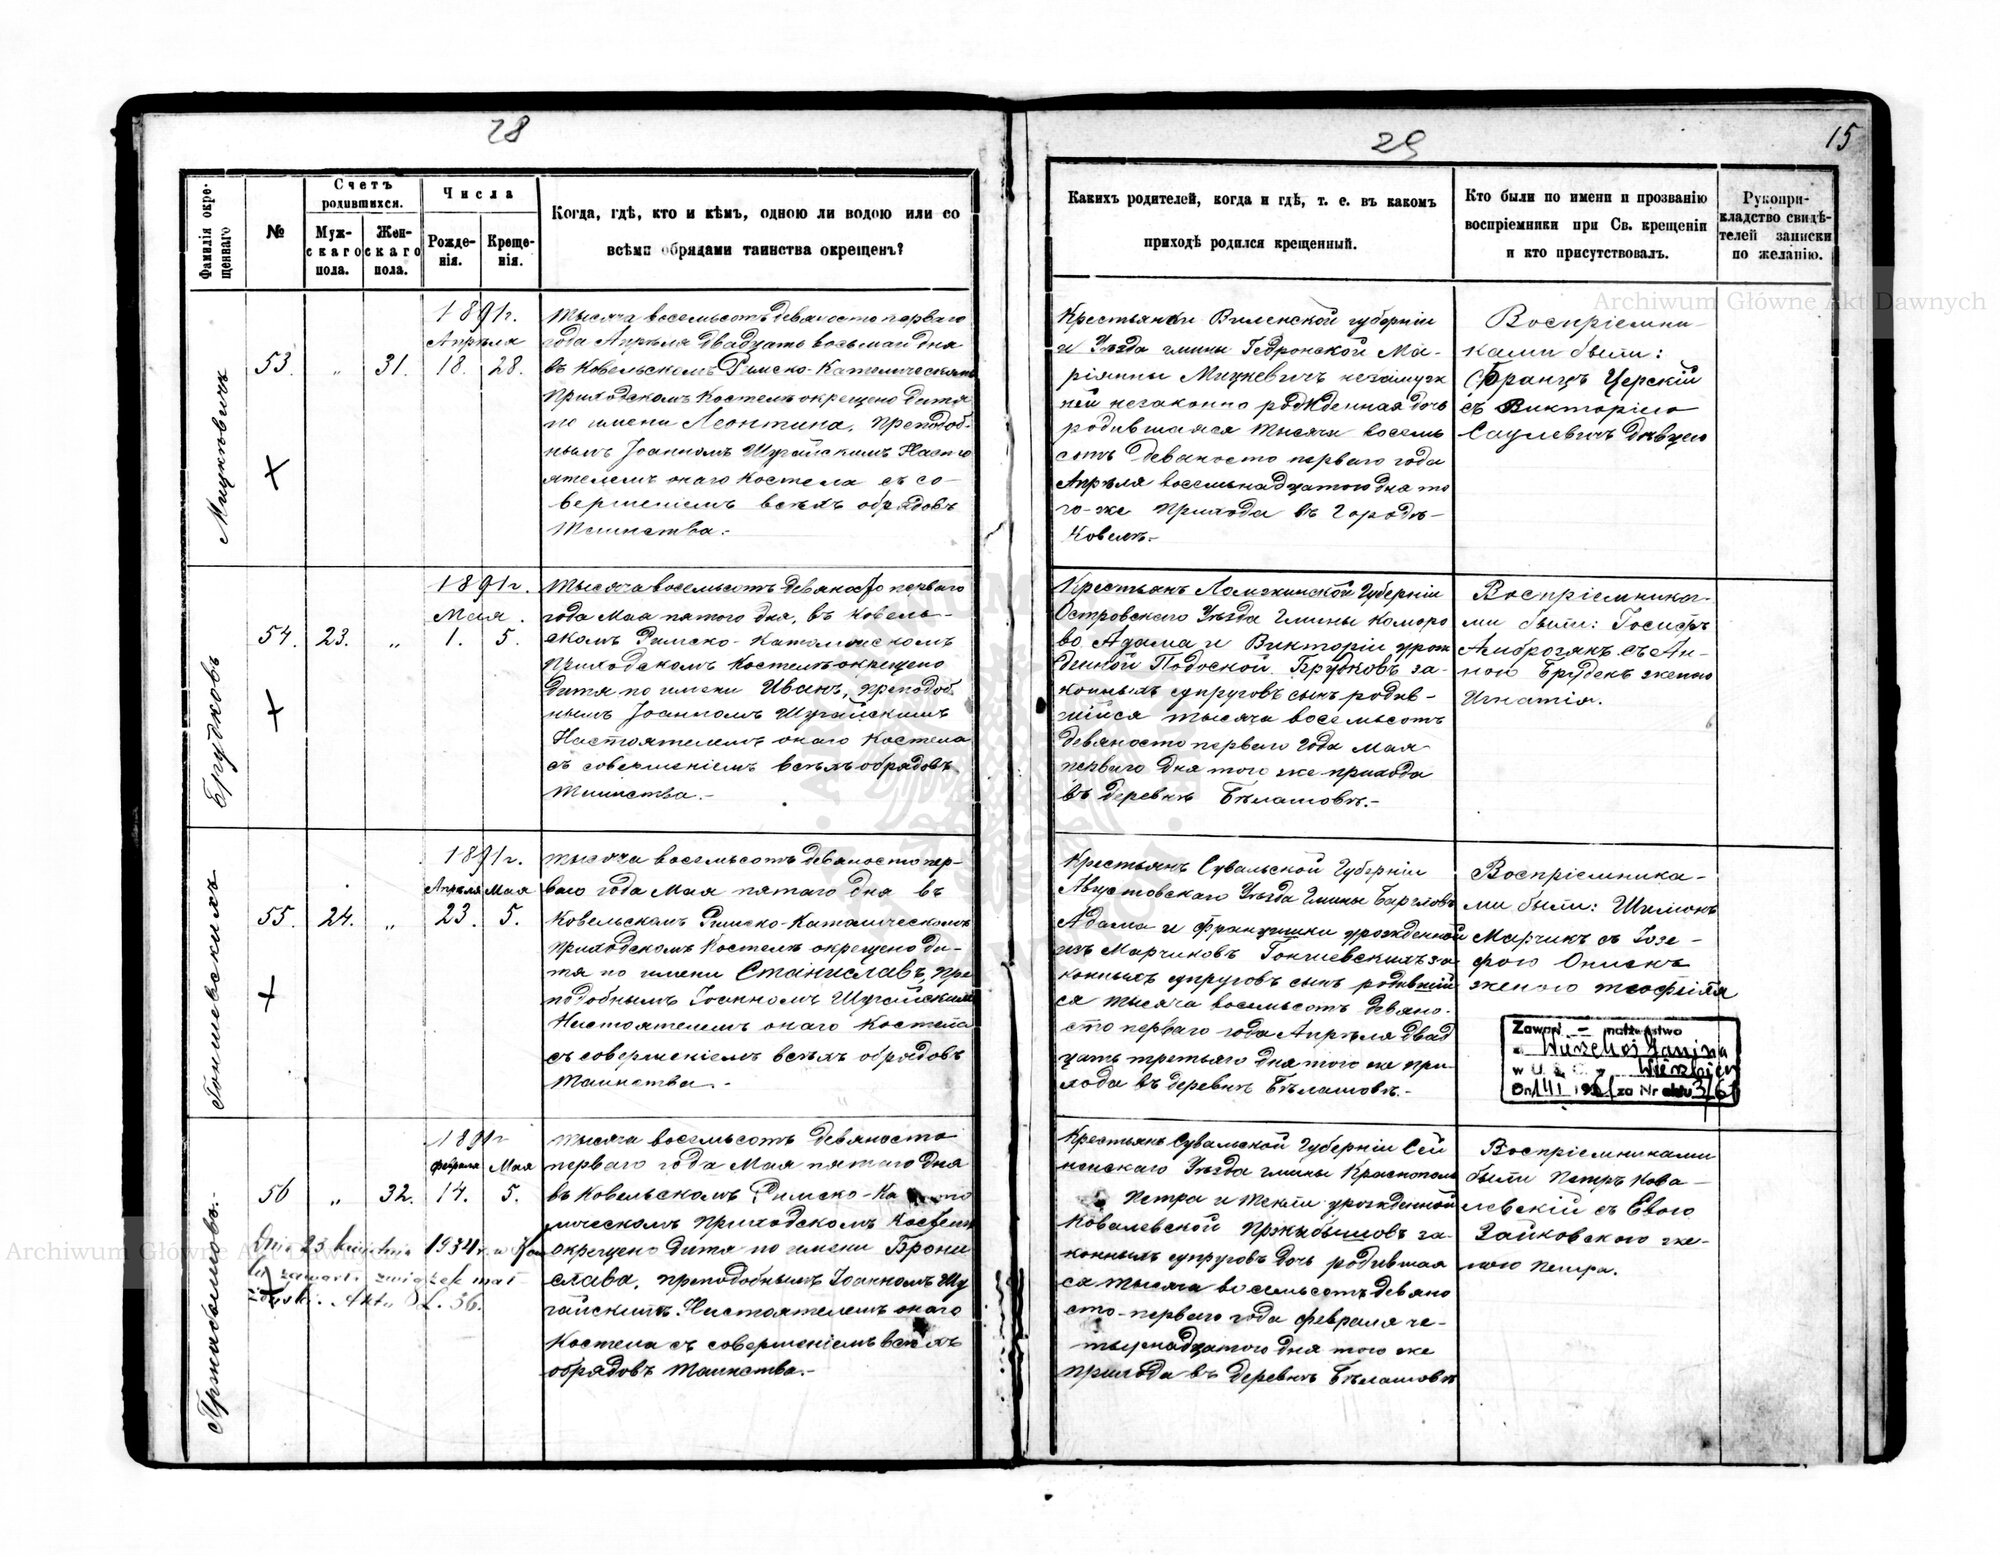 28
Фамилія окрещеннаго
№
Счетъ родившихся.
Мужскаго пола.
Женскаго пола.
Числа
Рожденія.
Крещенія.
Когда, гдѣ, кто и кѣмъ, одною ли водою или со
всѣми обрядами таинства окрещенъ?
Мицкевичъ
53.
„
31.
1891г.
Апрѣля
18.
28.
Тысяча восемьсотъ девяносто перваго
года Апрѣля двадцать восьмаго дня
въ Ковельскомъ Римско-Католическомъ
Приходскомъ Костелѣ окрещено дитя
по имени Леонтина, преподоб-
нымъ Іоанномъ Шугайскимъ Насто
ятелемъ онаго Костела съ со-
вершеніемъ всѣхъ обрядовъ
Таинства.-
Брудковъ
54.
23.
„
1891г.
Мая
1.
5.
Тысяча восемьсотъ девяносто перваго
года Мая пятого дня, въ Ковель-
скомъ Римско-Католическомъ
Приходскомъ Костелѣ окрещено
дитя по имени Иванъ, преподоб
нымъ Іоанномъ Шугайскимъ
Настоятелемъ онаго Костела
съ совершеніемъ всѣхъ обрядовъ
Таинства.-
55.
24.
„
1891г.
Апрѣля
Мая
23.
5.
Тысяча восемьсотъ девяносто пер-
ваго года Мая пятаго дня въ
Ковельскомъ Римско-Католическомъ
Приходскомъ Костелѣ окрещено ди-
тя по имени Станиславъ, пре
подобнымъ Іоанномъ Шугайскимъ
Настоятелемъ онаго Костела
съ совершеніемъ всѣхъ обрядовъ
Таинства.-
56
„
32.
1891г
февраля
Мая
14.
5.
Dnia 23 kwietnia 1934 r. w
zawarła związek mał
żeński. Akt L. 36.
Тысяча восемьсотъ девяносто
перваго года Мая пятаго дня
въ Ковельскомъ Римско-Като
лическомъ Приходскомъ Костелѣ
окрещено дитя по имени Брони
слава, преподобнымъ Іоанномъ Шу
гайскимъ Настоятелемъ онаго
Костела съ совершеніемъ всѣхъ
обрядовъ Таинства.-
29
15
Какихъ родителей, когда и гдѣ, т. е. въ какомъ
приходѣ родился крещенный.
Кто были по имени и прозванію
воспріемники при Св. крещеніи
и кто присутствовалъ.
Рукопри-
кладство свидѣ-
телей записки
по желанію.
Крестьянки Виленской губерніи
и Уѣзда гмины Гедронской Ма-
ріянны Мицкевичъ незамуж
ней незаконно рожденная дочь
родившаяся тысяча восемь
сотъ девяносто перваго года
Апрѣля восемьнадцатого дня то
го-же прихода въ городѣ-
Ковелѣ.-
Воспріемни-
ками были:
Францъ Церскій
съ Викторіею
Саулевичъ дѣвцею
Крестьянъ Ломжинской Губерніи
Островскаго Уѣзда Гмины Комаро
во Адама и Викторіи урож
денной Подоской Брудковъ за-
конныхъ супруговъ сынъ родив-
шійся тысяча восемьсотъ
девяносто перваго года Мая
перваго дня того же прихода
въ деревнѣ Бѣлашовѣ.-
Воспріемника-
ми были: Іосифъ
Амброзякъ съ Ан-
ной Брудекъ женою
Игнатія.
Крестьянъ Сувальской Губерніи
Августовскаго Уѣзда Гмины
Адама и Францишки урожденной
изъ Марчиковъ за
конныхъ супруговъ сынъ родившій
ся тысяча восемьсотъ девяно-
сто перваго года Апрѣля двад
цать третьяго дня того же при-
хода въ деревнѣ Бѣлашовѣ.-
Воспріемника-
ми были: Шимонъ
Марчикъ съ Юзе-
фою
женою Теофіля
Zawarł – małżeństwo
Janina
w U. S. C. w Wierzbica
Dn. za Nr aktu
Крестьянъ Сувальской Губерніи Сей
ненскаго Уѣзда гмины Краснополь
Петра и урожденной
Ковалевской Пржыбышовъ за-
конныхъ супруговъ дочь родившая
ся тысяча восемьсотъ девяно
сто-перваго года февраля че-
тырнадцатого дня того же
прихода въ деревнѣ Бѣлашовѣ
Воспріемниками
были Петръ Кова-
левскій съ Евою
Зайковскою же-
ною Петра.
Archiwum Główne Akt Dawnych
Archiwum Główne Akt Dawnych